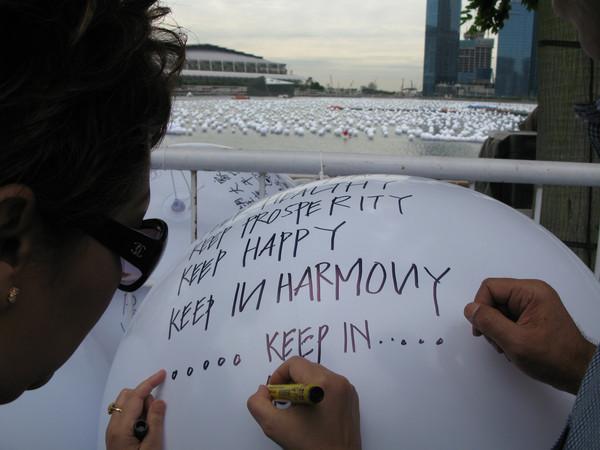 HEALTHY
KEEP PROSPERITY
KEEP HAPPY
KEEP IN HARMONY
..... KEEP IN.....